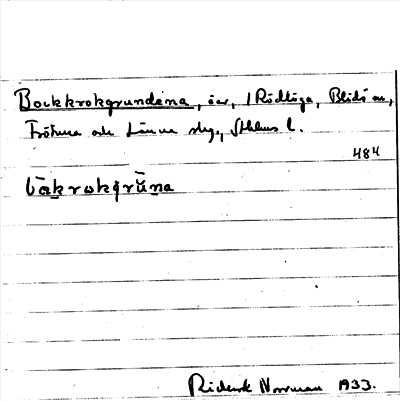 Bockkrokgrundena, öar, i Rödlöga, Blidö sn,
Frötuna och Länna skg., Sthlms l.
484
båkrokgrūna
Rickard Norrman 1933.